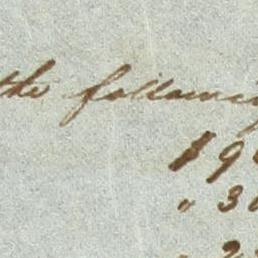 the following
$ 9
" 3
2